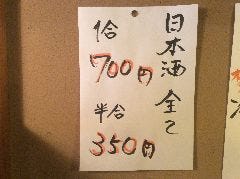 日本酒全て
1合
700円
半合
350円